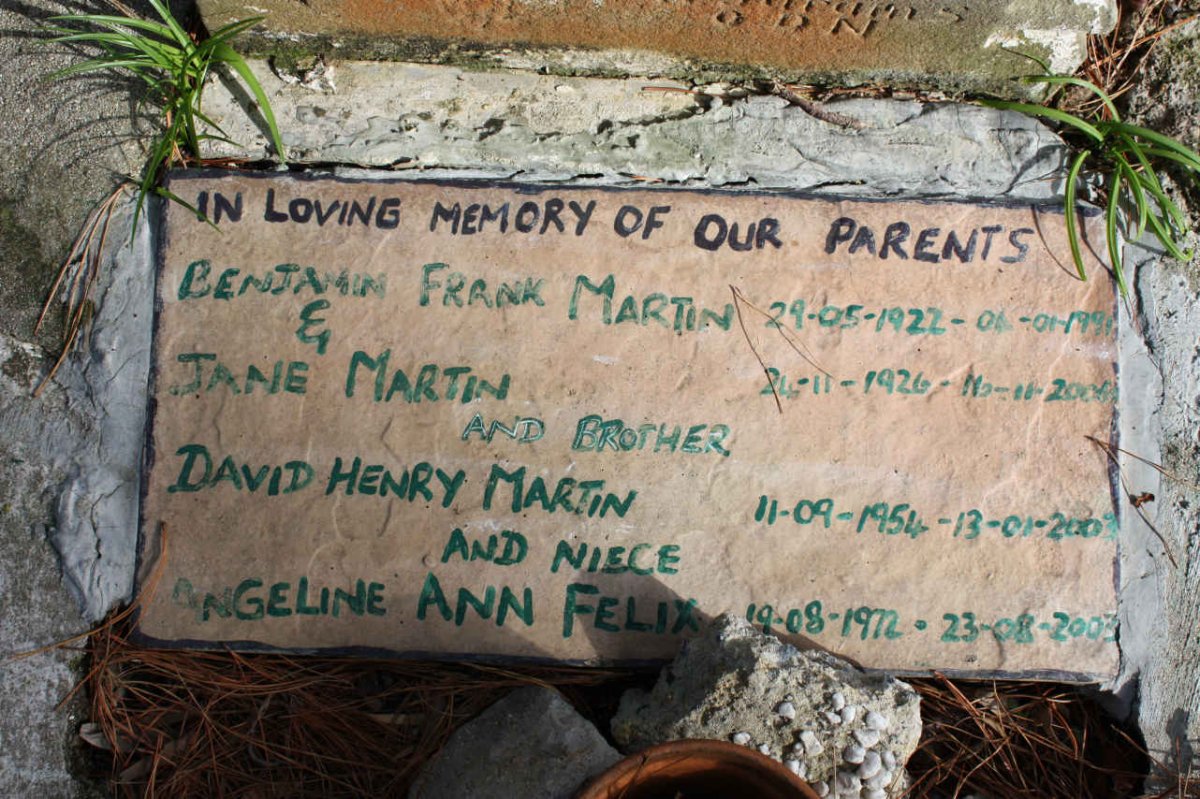 IN LOVING MEMORY OF OUR PARENTS
BENJAMIN FRANK MARTIN 29-05-1922 -
&
JANE MARTIN 24-11-1926 - 16-11-2006
AND BROTHER
DAVID HENRY MARTIN 11-09-1954 - 13-01-2003
AND NIECE
ANGELINE ANN FELIX 19-08-1972 - 23-08-2003